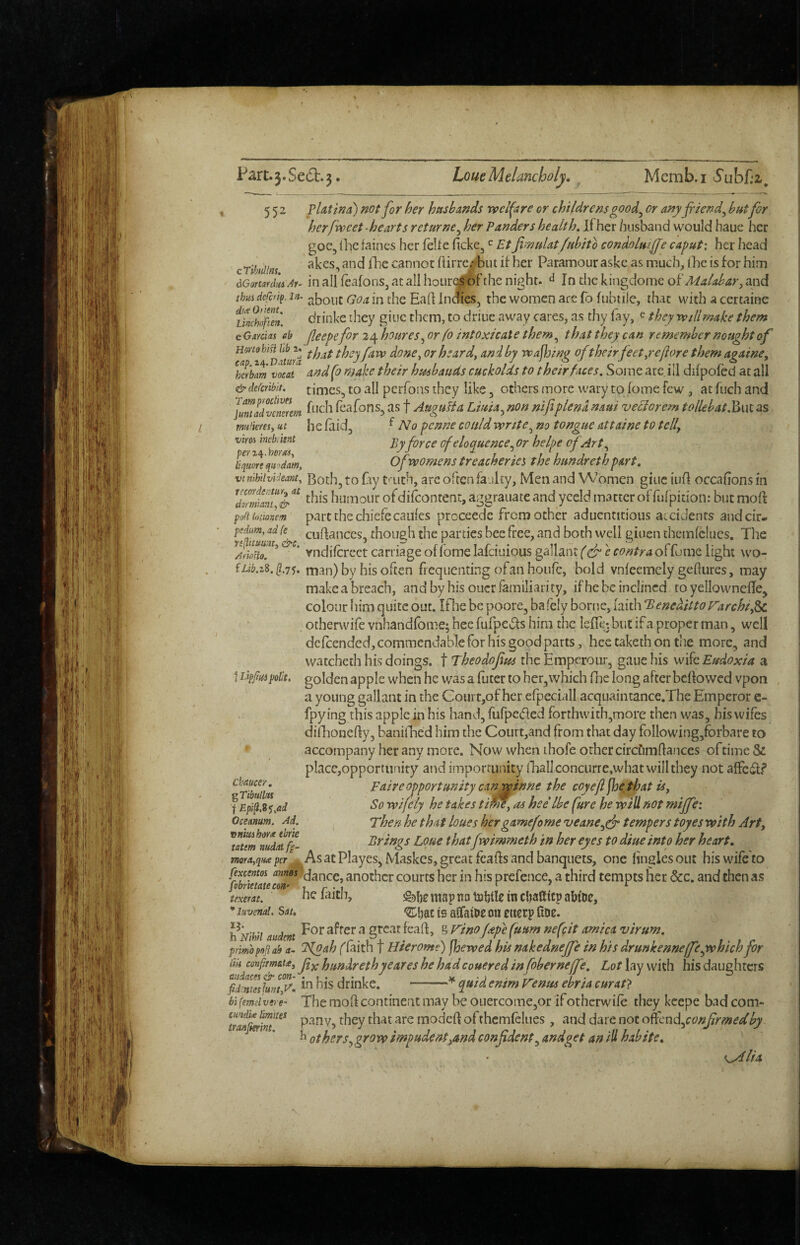 Part.3.Sect.3. Loue Melancholy. Memb.1 Subs.2.
552 Platina) not for her husbands welfare or childrens good, or any friend, but for
her sweet-hearts returne, her Panders health. If her husband would haue her
goe, she faines her selfe sicke, c Et simulat subito condoluisse caput: her head
akes, and she cannot stirre: but if her Paramour aske as much, she is for him
in all seasons, at all houres of the night. d In the kingdome of Malabar, and
about Goa in the East Indies, the women are so subtile, that with a certaine
drinke they giue them, to driue away cares, as thy say, e they will make them
sleepe for 24 houres, or so intoxicate them, that they can remember nought of
that they saw done, or heard, and by washing of their feet, restore them againe,
and so make their husbands cuckolds to their faces. Some are ill disposed at all
times, to all persons they like, others more wary to some few, at such and
such seasons, as † Augusta Liuia, non nisi plenâ naui vectorem tollebat. But as
he said, f No penne could write, no tongue attaine to tell,
By force of eloquence, or helpe of Art,
Of womens treacheries the hundreth part.
Both, to say truth, are often faulty, Men and Women giue iust occasions in
this humour of discontent, aggrauate and yeeld matter of suspition: but most
part the chiefe causes proceede from other aduentitious accidents and cir-
custances, though the parties bee free, and both well giuen themselues. The
vndiscreet carriage of some lasciuious gallant (& è contra of some light wo-
man) by his often frequenting of an house, bold vnseemely gestures, may
make a breach, and by his ouer familiarity, if he be inclined to yellownesse,
colour him quite out. If he be poore, basely borne, saith Beneditto Varchi, &
otherwise vnhandsome; hee suspects him the lesse; but if a proper man, well
descended, commendable for his good parts, hee taketh on the more, and
watcheth his doings. † Theodosius the Emperour, gaue his wife Eudoxia a
golden apple when he was a suter to her, which she long after bestowed vpon
a young gallant in the Court, of her especiall acquaintance. The Emperor e-
spying this apple in his hand, suspected forthwith, more then was, his wifes
dishonesty, banished him the Court, and from that day following, forbare to
accompany her any more. Now when those other circumstances of time &
place, opportunity and importunity shall concurre, what will they not affect?
Faire opportunity can winne the coyest she that is,
So wisely he takes time, as hee'lbe sure he will not misse:
Then he that loues her gamesome veane, & tempers toyes with Art,
Brings Loue that swimmeth in her eyes to diue into her heart.
As at Playes, Maskes, great feasts and banquets, one singles out his wife to
dance, another courts her in his presence, a third tempts her &c. and then as
he saith, She may no while in chastity abide,
That is assaide on euery side.
For after a great feast, g Vino sæpè suum nescit amica virum.
Noah (saith † Hierome) shewed his nakednesse in his drunkennesse, which for
six hundreth yeares he had couered in sobernesse. Lot lay with his daughters
in his drinke. —* quid enim Venus ebria curat?
The most continent may be ouercome, or if otherwise they keepe bad com-
pany, they that are modest of themselues, and dare not offend, confirmed by
h others, grow impudent, and confident, and get an ill habite.
Alia
c Tibullus.
d Gotardus Ar-
thus descrip. In-
diæ Orient.
Linchosten.
e Garcias ab
Horto hist lib 2.
cap. 24. Daturā
herbam vocat
& describit.
Tam proclives
sunt ad venerem
mulieres, ut
viros inebrient
per 24. horas,
liquore quodam,
vt nihil videant,
recordentur, at
dormiant, &
post lotionem
pedum, ad se
restituunt, &c.
Ariosto.
f Lib.28. st.75.
‡ Lipsius polit.
Chaucer.
g Tibullus
† Epist.85. ad
Oceanum. Ad.
vnius horæ ebrie
tatem nudat fe-
mora, quæ per
sexcentos annos
sobrietate con-
texerat.
* Iuvenal. Sat.
13.
h Nihil audent
primò post ab a-
liis confirmatæ,
audaces & con-
fidentes sunt, V.
bi semel vere-
cundiæ limites
transierint.